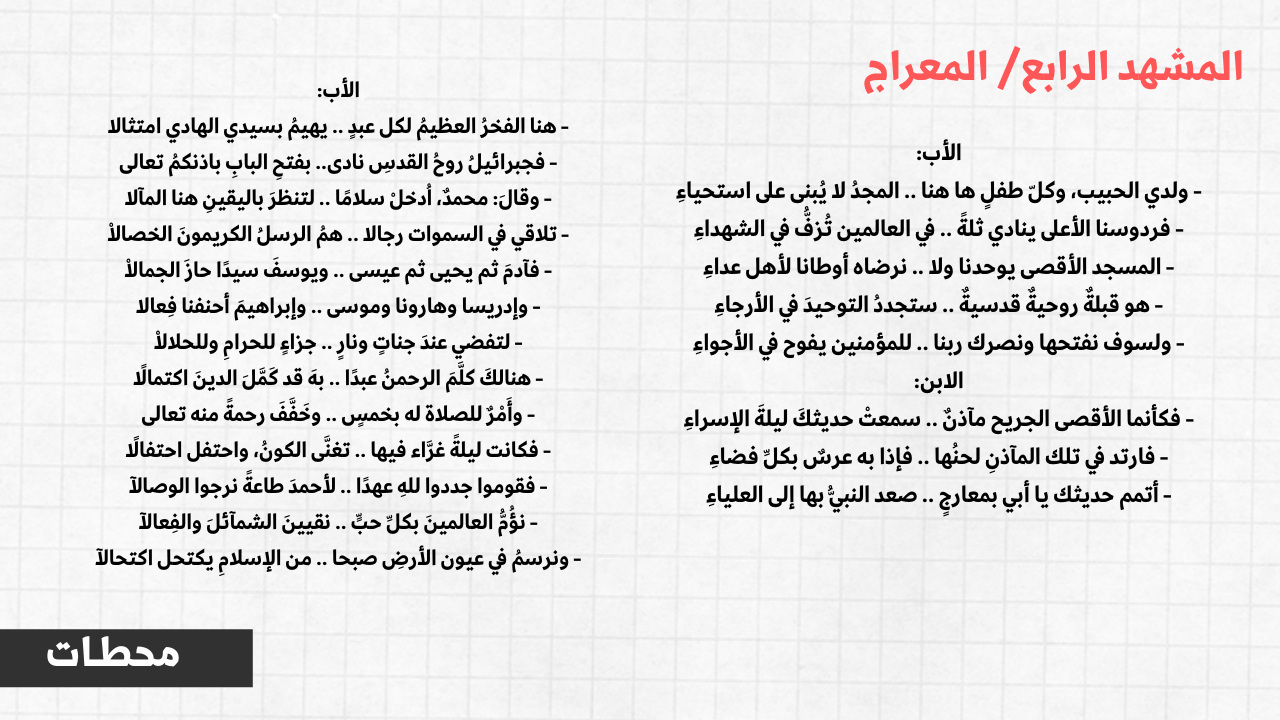 المشهد الرابع/ المعراج
الأب:
- ولدي الحبيب، وكلّ طفلٍ ها هنا .. المجدُ لا يُبنى على استحياءِ
- فردوسنا الأعلى ينادي ثلةً .. في العالمين تُزفُّ في الشهداءِ
- المسجد الأقصى يوحدنا ولا .. نرضاه أوطانا لأهل عداءِ
- هو قبلةٌ روحيةٌ قدسيةٌ .. ستجددُ التوحيدَ في الأرجاءِ
- ولسوف نفتحها ونصرك ربنا .. للمؤمنين يفوح في الأجواءِ
الابن:
- فكأنما الأقصى الجريح مآذنٌ .. سمعتْ حديثكَ ليلةَ الإسراءِ
- فارتد في تلك المآذنِ لحنُها .. فإذا به عرسٌ بكلِّ فضاءِ
- أتمم حديثك يا أبي بمعارجٍ .. صعد النبيُّ بها إلى العلياءِ
الأب:
- هنا الفخرُ العظيمُ لكل عبدٍ .. يهيمُ بسيدي الهادي امتثالا
- فجبرائيلُ روحُ القدسِ نادى.. بفتحِ البابِ باذنكمُ تعالى
- وقالَ: محمدٌ، اُدخلْ سلامًا .. لتنظرَ باليقينِ هنا المآلا
- تلاقي في السموات رجالا .. همُ الرسلُ الكريمونَ الخصالاْ
- فآدمَ ثم يحيى ثم عيسى .. ويوسفَ سيدًا حازَ الجمالاْ
- وإدريسا وهارونا وموسى .. وإبراهيمَ أحنفنا فِعالا
- لتفضي عندَ جناتٍ ونارٍ .. جزاءٍ للحرامِ وللحلالاْ
- هنالكَ كلَّمَ الرحمنُ عبدًا .. بهَ قد كَمَّلَ الدينَ اكتمالًا
- وأَمْرٌ للصلاة له بخمسٍ .. وخَفَّفَ رحمةً منه تعالى
- فكانت ليلةً غرَّاء فيها .. تغنَّى الكونُ، واحتفل احتفالًا
- فقوموا جددوا للهِ عهدًا .. لأحمدَ طاعةً نرجوا الوصالآ
- نؤُمُّ العالمينَ بكلِّ حبٍّ .. نقيينَ الشمآئلَ والفِعالآ
- ونرسمُ في عيون الأرضِ صبحا .. من الإسلامِ يكتحل اكتحالآ
محطات